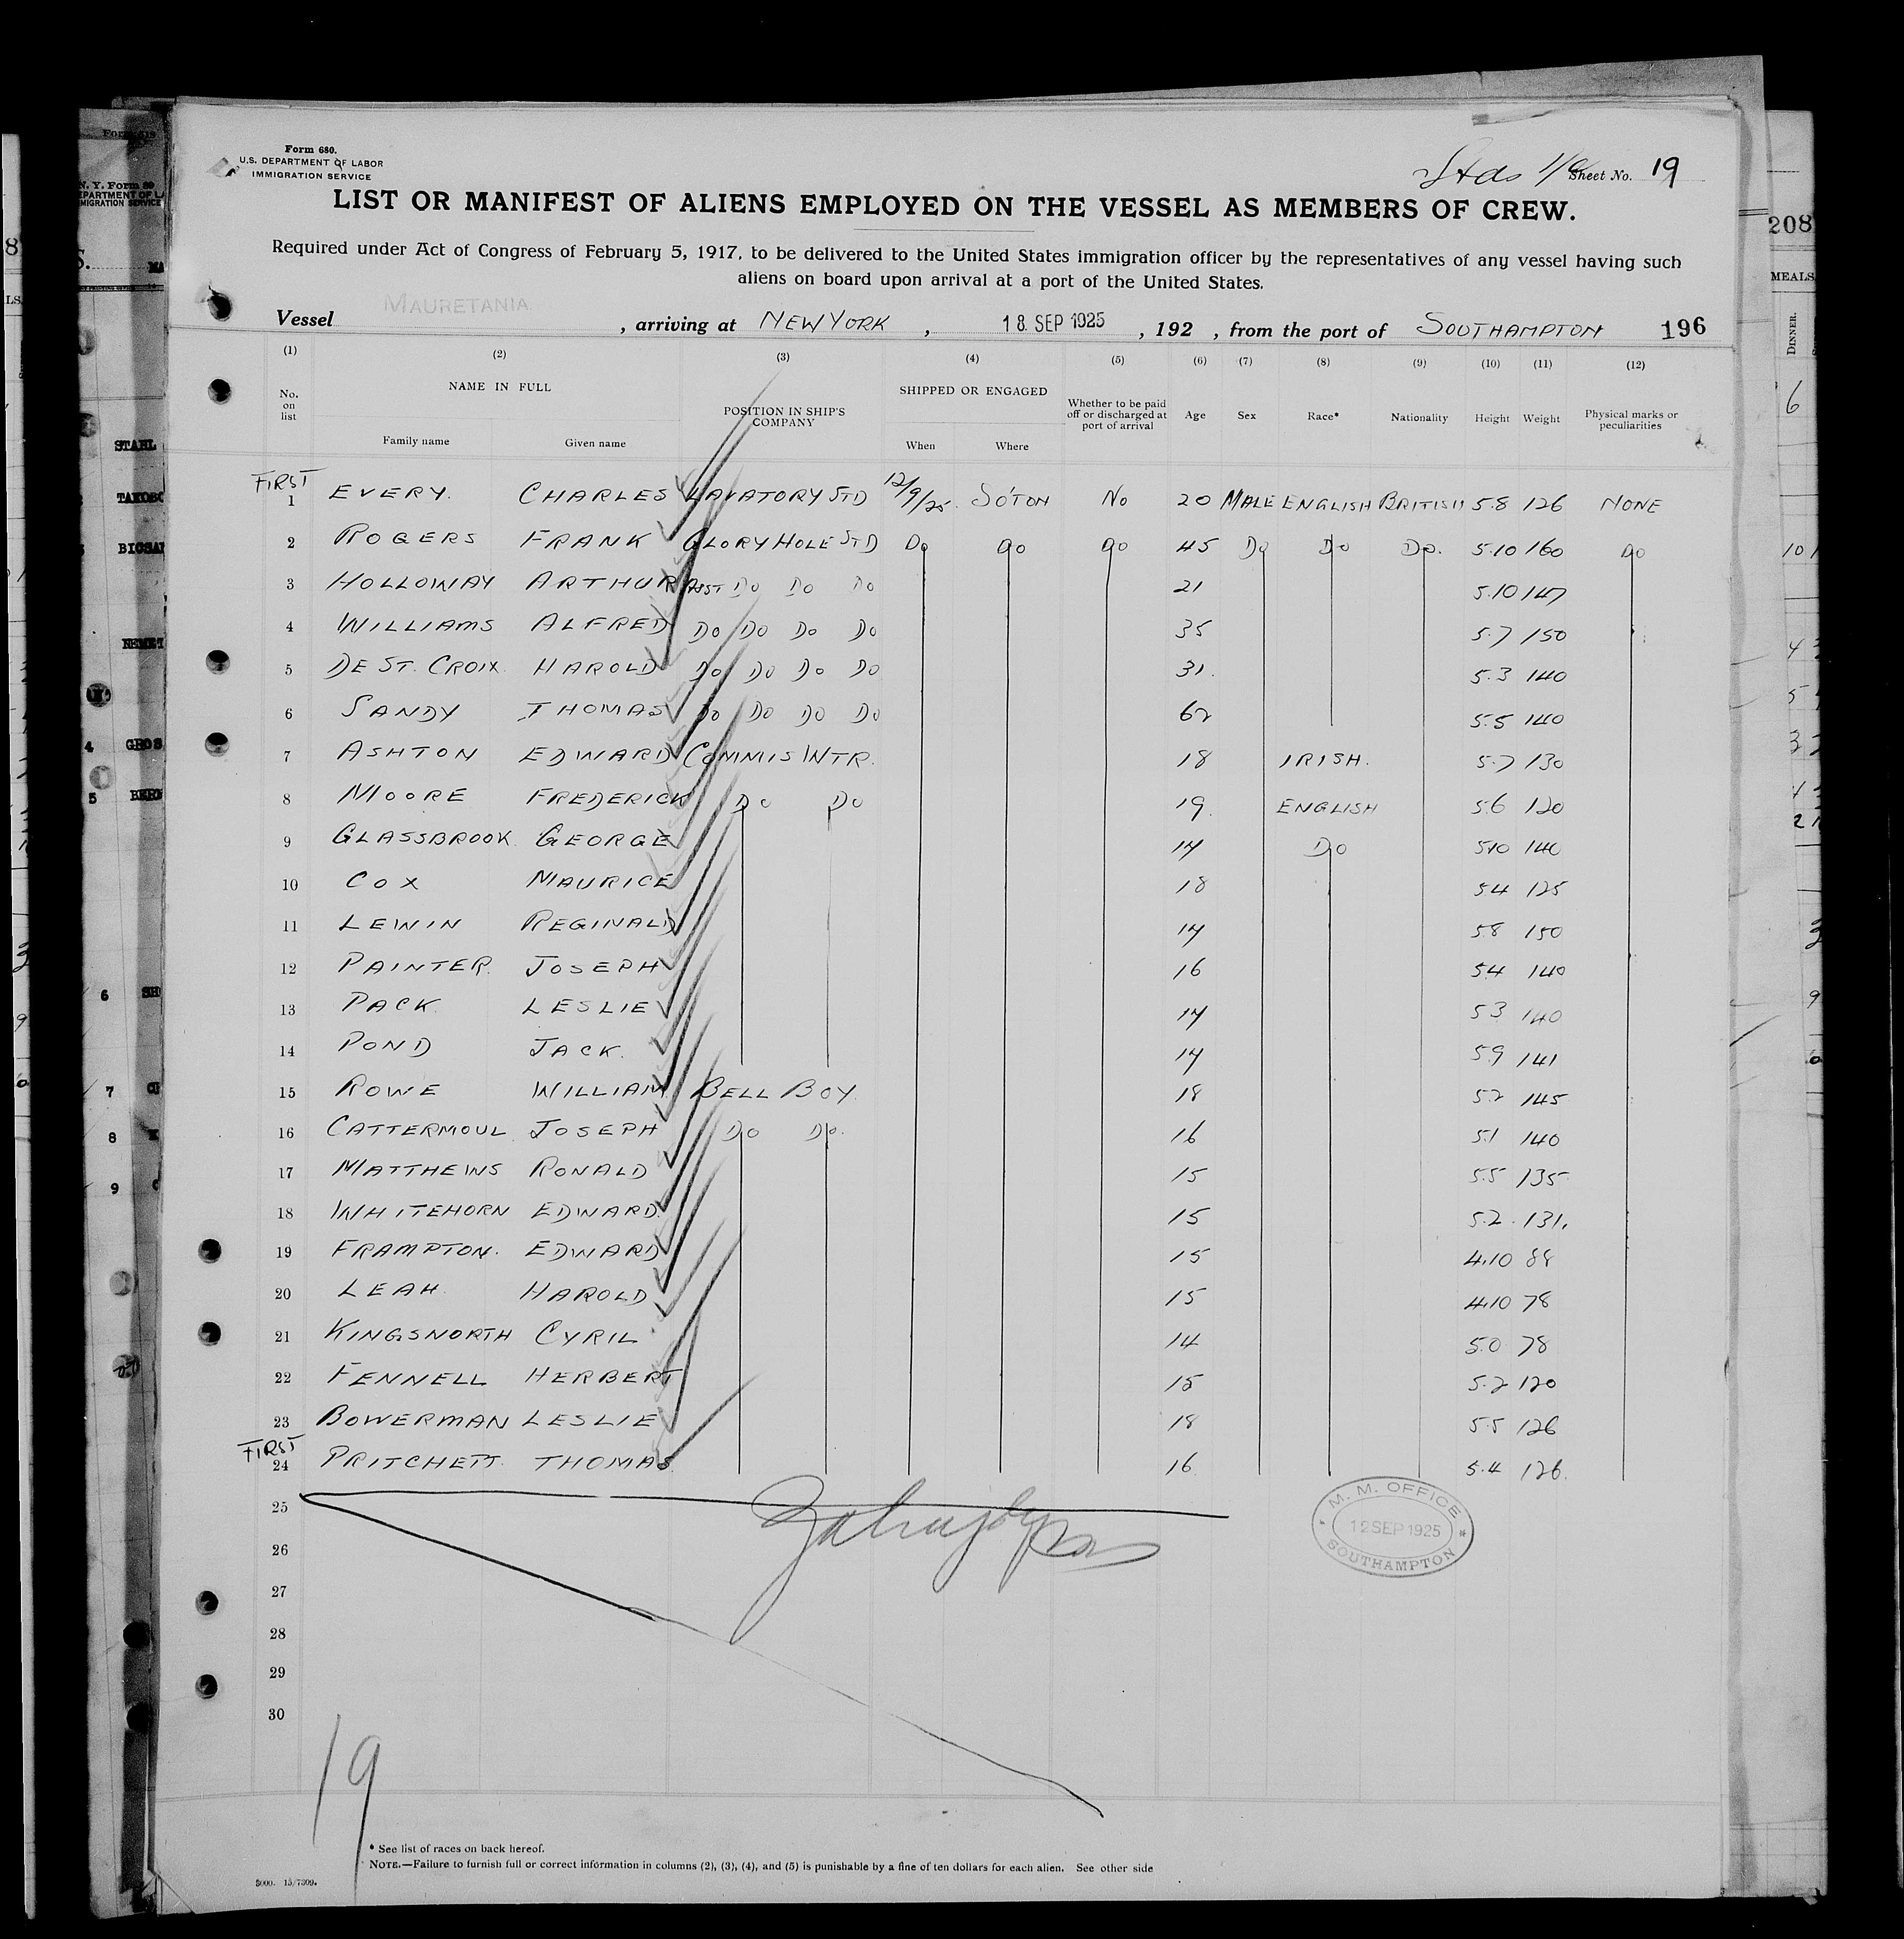 Form 680.
U.S. DEPARTMENT OF LABOR
IMMIGRATION SERVICE
Stds Sheet No. 19
LIST OR MANIFEST OF ALIENS EMPLOYED ON THE VESSEL AS MEMBERS OF CREW.
Required under Act of Congress of February 5, 1917, to be delivered to the United States immigration officer by the representatives of any vessel having such
aliens on board upon arrival at a port of the United States.
Vessel MAURETANIA, arriving at NEW YORK, 18 SEP 1925, 192 , from the port of SOUTHAMPTON 196
(1) (2) (3) (4) (5) (6) (7) (8) (9) (10) (11) (12)
No. on list NAME IN FULL Family name Given name POSITION IN SHIP'S COMPANY SHIPPED OR ENGAGED When Where Whether to be paid off or discharged at port of arrival Age Sex Race* Nationality Height Weight Physical marks or peculiarities
FIRST
1 EVERY. CHARLES LAVATORY STD 12/9/25. SO'TON NO 20 MALE ENGLISH BRITISH 5.8 126 NONE
2 ROGERS FRANK GLORY HOLE STD Do do do 45 Do Do Do. 5.10 160 do
3 HOLLOWAY ARTHUR ASST Do Do Do 21 5.10 147
4 WILLIAMS ALFRED Do Do Do Do 35 5.7 150
5 DE ST. CROIX HAROLD Do Do Do Do 31. 5.3 140
6 SANDY THOMAS Do Do Do Do 62 5.5 140
7 ASHTON EDWARD COMMIS WTR. 18 IRISH. 5.7 130
8 MOORE FREDERICK Do Do 19. ENGLISH 5.6 120
9 GLASSBROOK GEORGE 17 Do 5.10 140
10 COX MAURICE 18 5.4 125
11 LEWIN REGINALD 17 5.8 150
12 PAINTER JOSEPH 16 5.4 140
13 PACK LESLIE 17 5.3 140
14 POND JACK. 17 5.9 141
15 ROWE WILLIAM BELL BOY. 18 5.2 145
16 CATTERMOUL JOSEPH Do Do. 16 5.1 140
17 MATTHEWS RONALD 15 5.5 135
18 WHITEHORN EDWARD. 15 5.2 131.
19 FRAMPTON. EDWARD 15 4.10 88
20 LEAH HAROLD 15 4.10 78
21 KINGSNORTH CYRIL 14 5.0 78
22 FENNELL HERBERT 15 5.2 120
23 BOWERMAN LESLIE 18 5.5 126
FIRST
24 PRITCHETT THOMAS 16 5.4 126.
25
26
27
28
29
30
M. M. OFFICE
12 SEP 1925
SOUTHAMPTON
19
* See list of races on back hereof.
NOTE.—Failure to furnish full or correct information in columns (2), (3), (4), and (5) is punishable by a fine of ten dollars for each alien. See other side